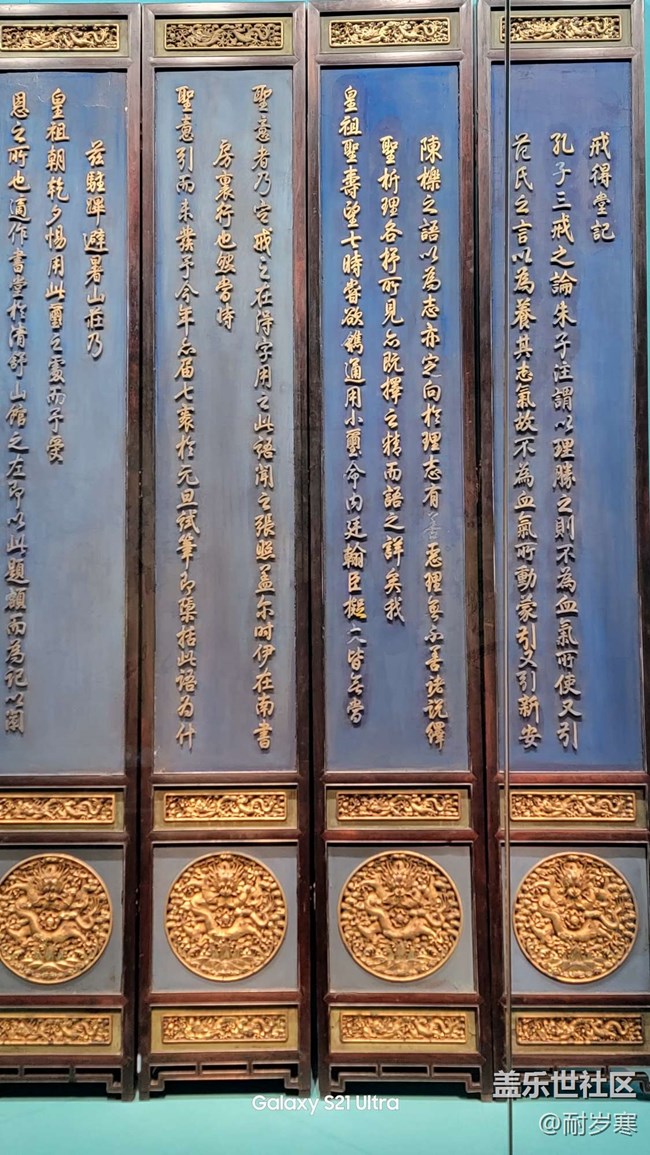 戒得堂記
孔子三戒之論朱子注謂以理勝之則不為血氣所使又引
范氏之言以為養其志氣故不為血氣所動蒙引又引新安
陳櫟之語以為志亦定向於理志有善惡理無不善諸說繹
聖析理各抒所見亦既擇之精而語之詳矣我
皇祖聖壽望七時嘗欲鐫通用小璽命內廷翰臣擬文皆無當
聖意者乃定戒之在得字用之此語聞之張照蓋爾時伊在南書
房裏行也然時
聖意引而未發予今年亦屆七袠於元旦試筆即檃括此語為什
茲駐蹕避暑山莊乃
皇祖朝乾夕惕用此璽之處而予受
恩之所也適作書堂於清舒山館之左即以此題額而為記以闡
Galaxy S21 Ultra
盖乐世社区
@耐岁寒